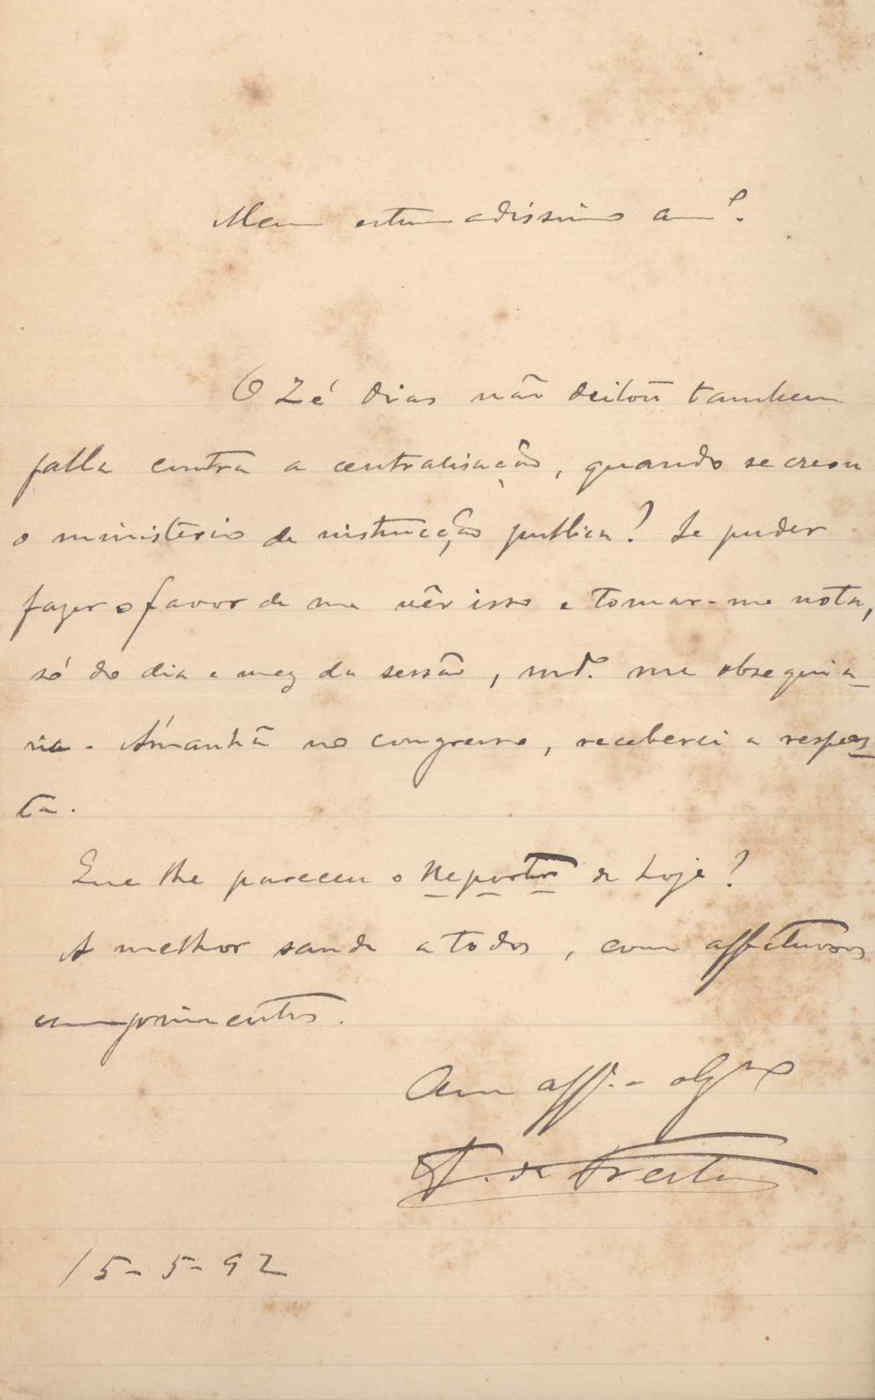 Meu estimadissimo amº.
O Zé Dias não deitou tambem
falla contra a centralisação, quando se creou
o ministerio de instrucção publica? Se puder
fazer o favor de me vêr isso e tomar-me nota,
só do dia e mez da sessão, mtº. me obsequia-
ria. Ámanhã no congresso, receberei a respos-
ta.
Que lhe pareceu o Reporter de hoje?
A melhor saude a todos, com affectuosos
cumprimentos.
Am affº. e obgmo
de Freitas
15-5-92